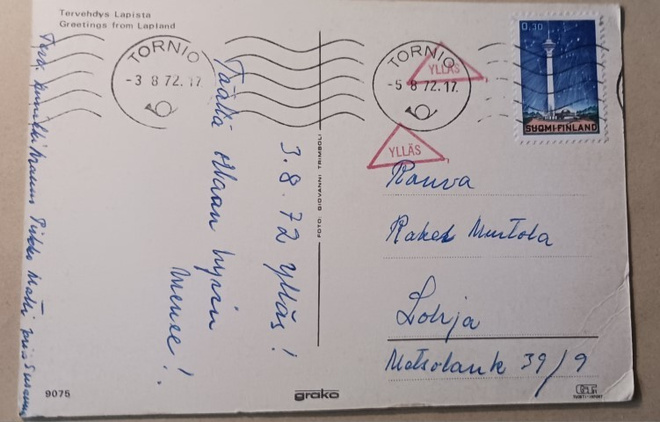 Tervehdys Lapista
Greetings from Lapland
TORNIO
-3 8 72.17
TORNIO
-5 8 72.17.
YLLÄS
YLLÄS
0,30
SUOMI-FINLAND
3.8.72 Ylläs!
Täällä ollaan hyvin
menee!
FOTO: GIOVANNI TRIMBOLI
Rouva
Rakel Murtola
Lohja
39/9
9075
grako